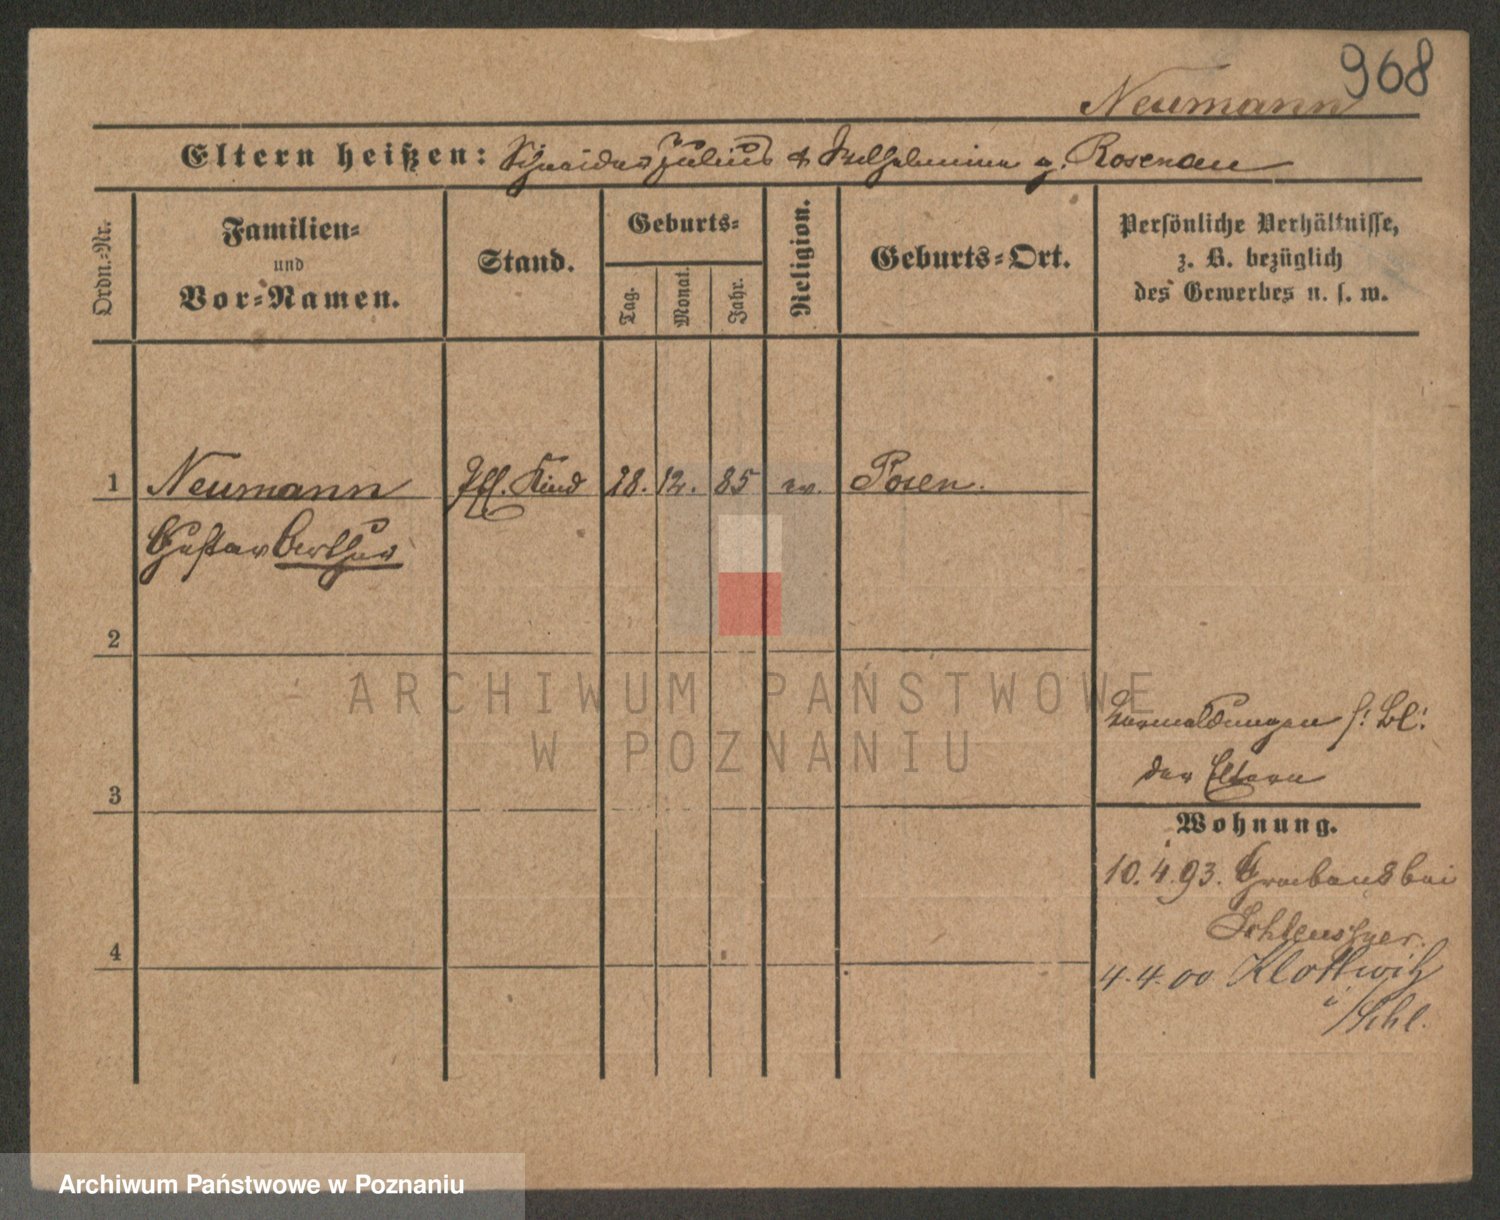 968
Neumann
Eltern heißen: Schneider Julius & Wilhelmine g. Rosenau
Ordn.-Nr.
Familien-
und
Vor-Namen.
Stand.
Geburts-
Tag.
Monat.
Jahr.
Religion.
Geburts-Ort.
Persönliche Verhältnisse,
z. B. bezüglich
des Gewerbes u. s. w.
1 Neumann Pfl. Kind 28. 12. 85 ev. Posen.
Gustav Arthur
2
ARCHIWUM PAŃSTWOWE
W POZNANIU
Vermeldungen s. Bl.
der Eltern
3
Wohnung.
10.4.93. bei
4
4.4.00 Klottwitz
Archiwum Państwowe w Poznaniu